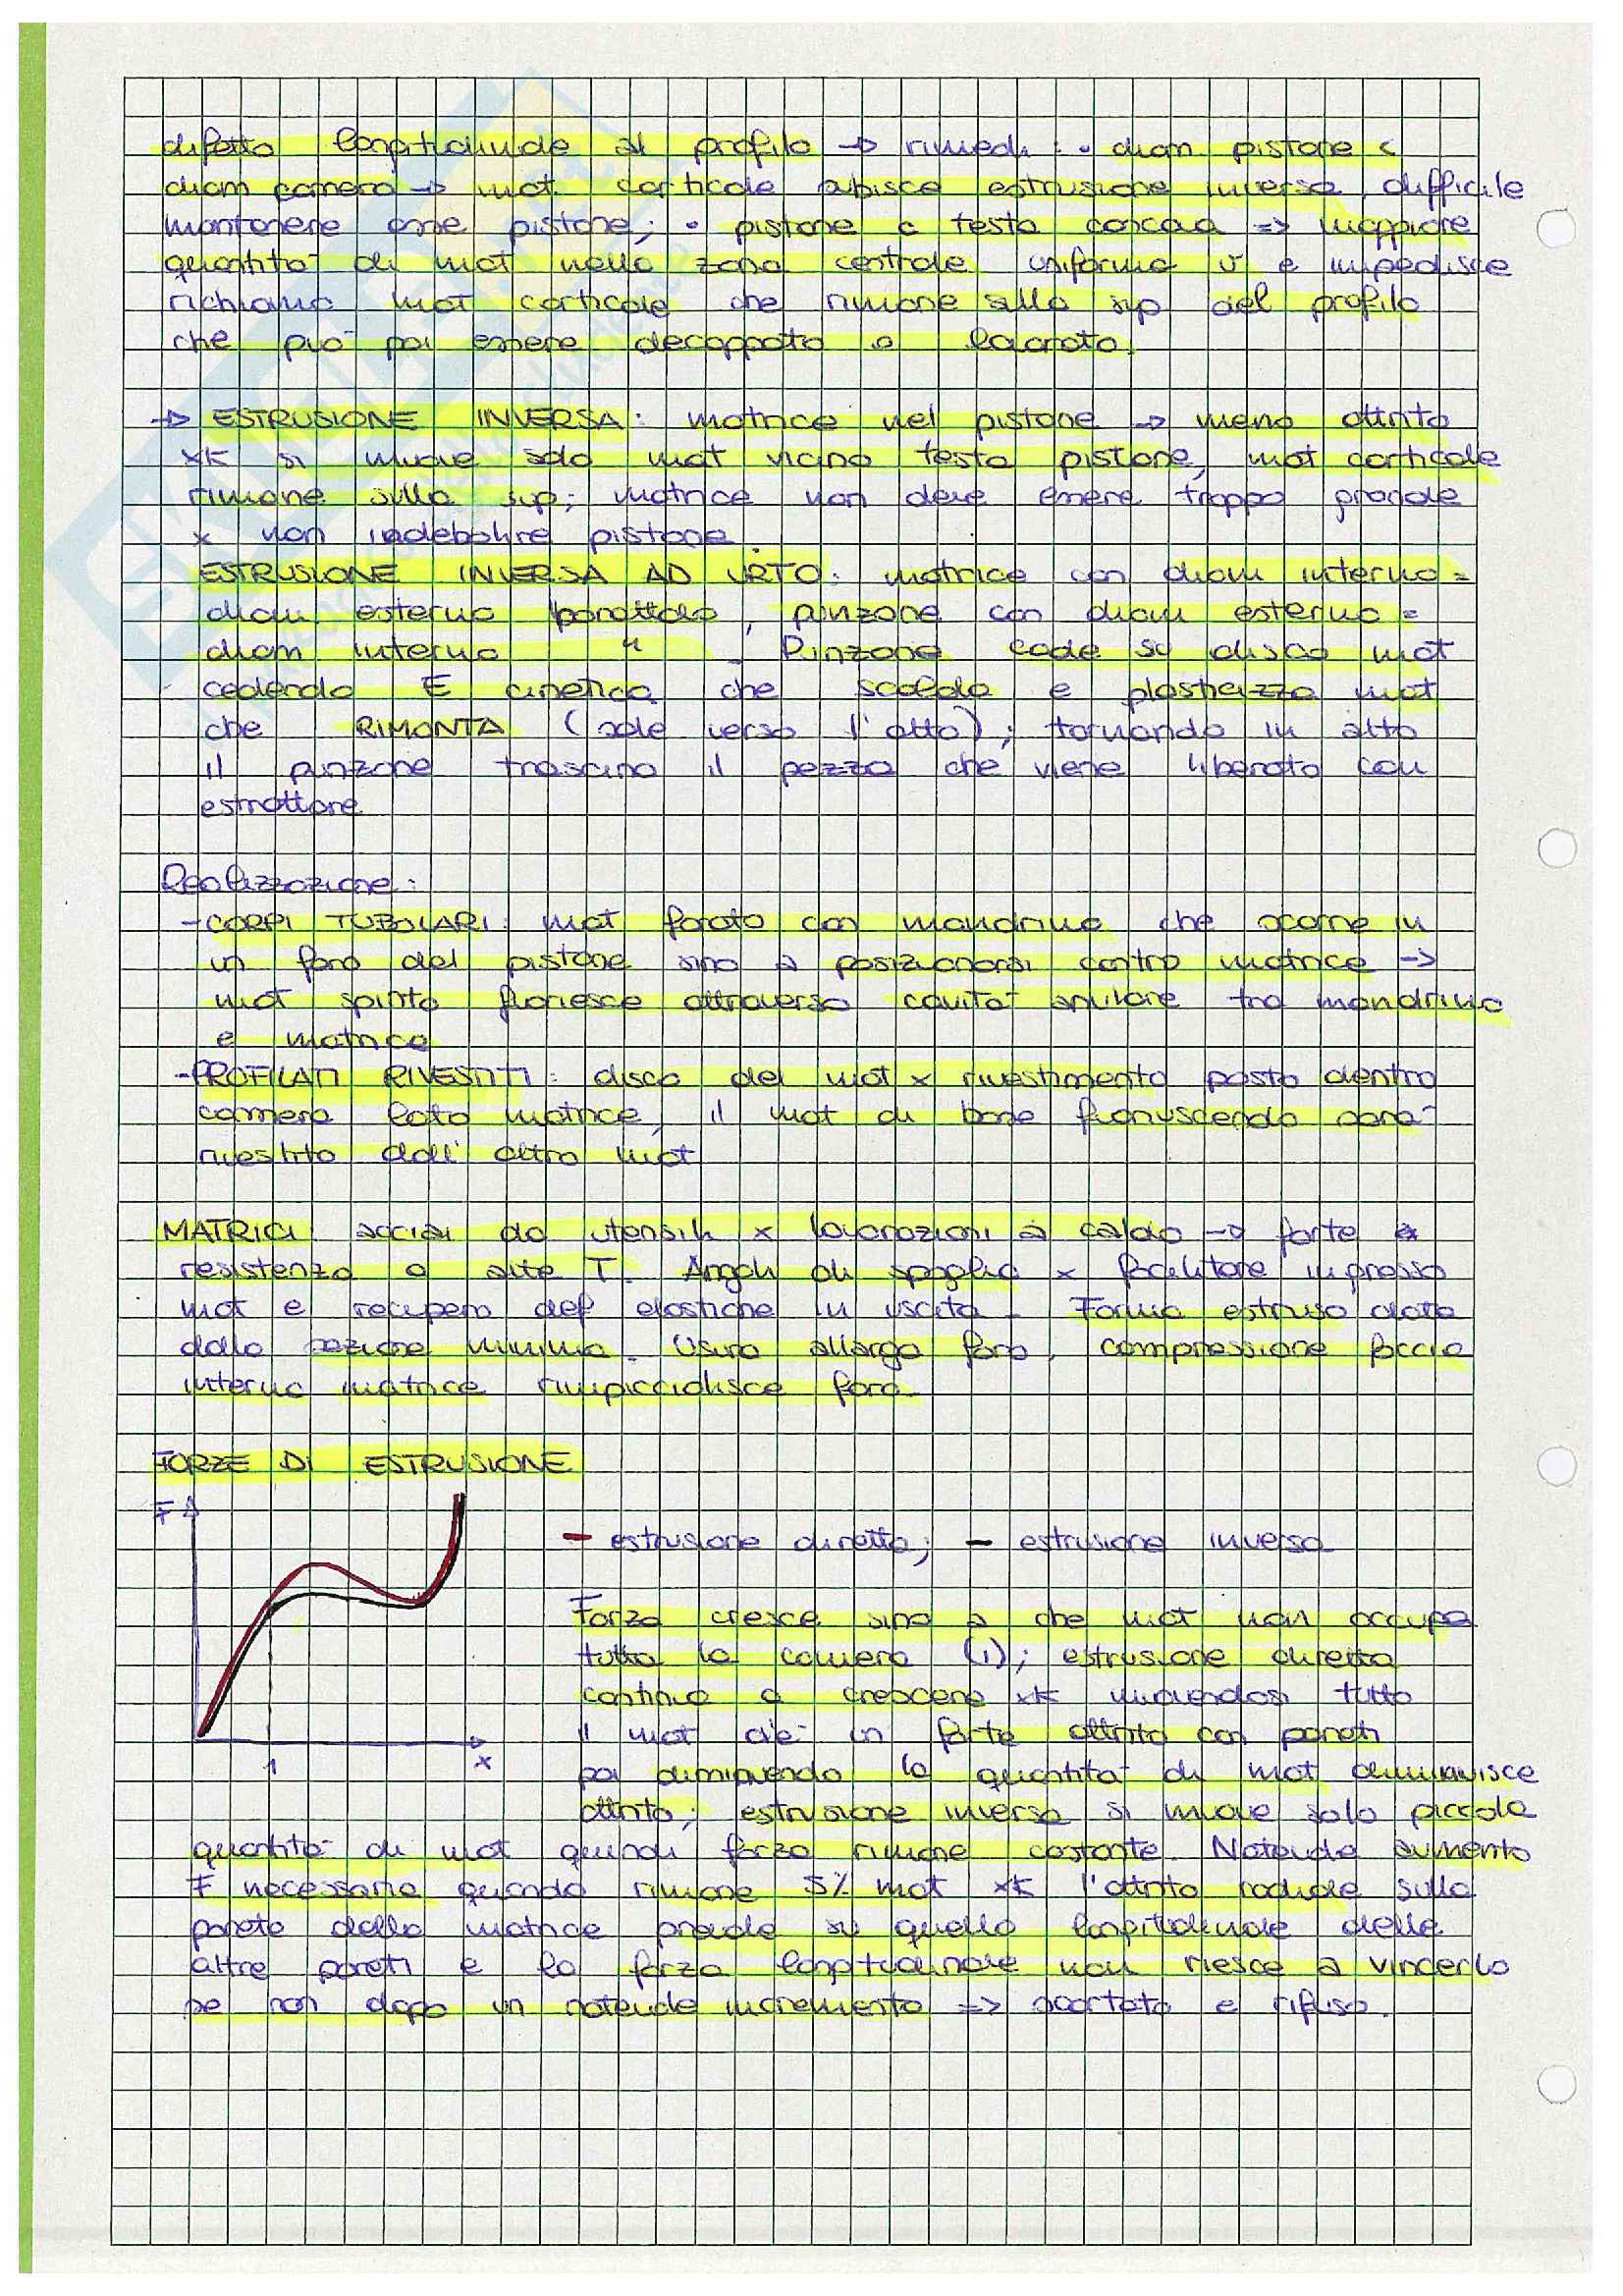 difetto longitudinale al profilo → rimedi : • diam pistone <
diam camera → mat. corticale subisce estrusione inversa, difficile
mantenere asse pistone; • pistone a testa concava => maggiore
quantità di mat nella zona centrale uniforma v e impedisce
richiamo mat corticale che rimane sulla sup del profilo
che può poi essere decappato o lavorato.
→ ESTRUSIONE INVERSA: matrice nel pistone → meno attrito
xk si muove solo mat vicino testa pistone, mat corticale
rimane sulla sup; matrice non deve essere troppo grande
x non indebolire pistone.
ESTRUSIONE INVERSA AD URTO: matrice con diam interno =
diam esterno barattolo, punzone con diam esterno =
diam interno " . Punzone cade su disco mat
cedendo E cinetica che scalda e plasticizza mat
che RIMONTA (sale verso l'alto); tornando in alto
il punzone trascina il pezzo che viene liberato con
estrattore.
Realizzazione:
- CORPI TUBOLARI: mat forato con mandrino che scorre in
un foro del pistone sino a posizionarsi contro matrice ->
mat spinto fuoriesce attraverso cavità anulare tra mandrino
e matrice
- PROFILATI RIVESTITI: disco del mat x rivestimento posto dentro
camera lato matrice, il mat di base fuoriuscendo sarà
rivestito dall'altro mat
MATRICI: acciai da utensili x lavorazioni a caldo → forte
resistenza a alte T. Angoli di spoglia x facilitare ingresso
mat e recupero def elastiche in uscita. Forma estruso data
dalla sezione minima. Usura allarga foro, compressione faccia
interna matrice rimpicciolisce foro.
FORZE DI ESTRUSIONE
F
- estrusione diretta; - estrusione inversa
Forza cresce sino a che mat non occupa
tutta la camera (1); estrusione diretta
continua a crescere xk muovendosi tutto
il mat c'è un forte attrito con pareti
1 x
poi diminuendo la quantità di mat diminuisce
attrito; estrusione inversa si muove solo piccola
quantità di mat quindi forza rimane costante. Notevole aumento
F necessaria quando rimane 5% mat xk l'attrito radiale sulla
parete della matrice prevale su quello longitudinale delle
altre pareti e la forza longitudinale non riesce a vincerlo
se non dopo un notevole incremento => scartato e rifuso.